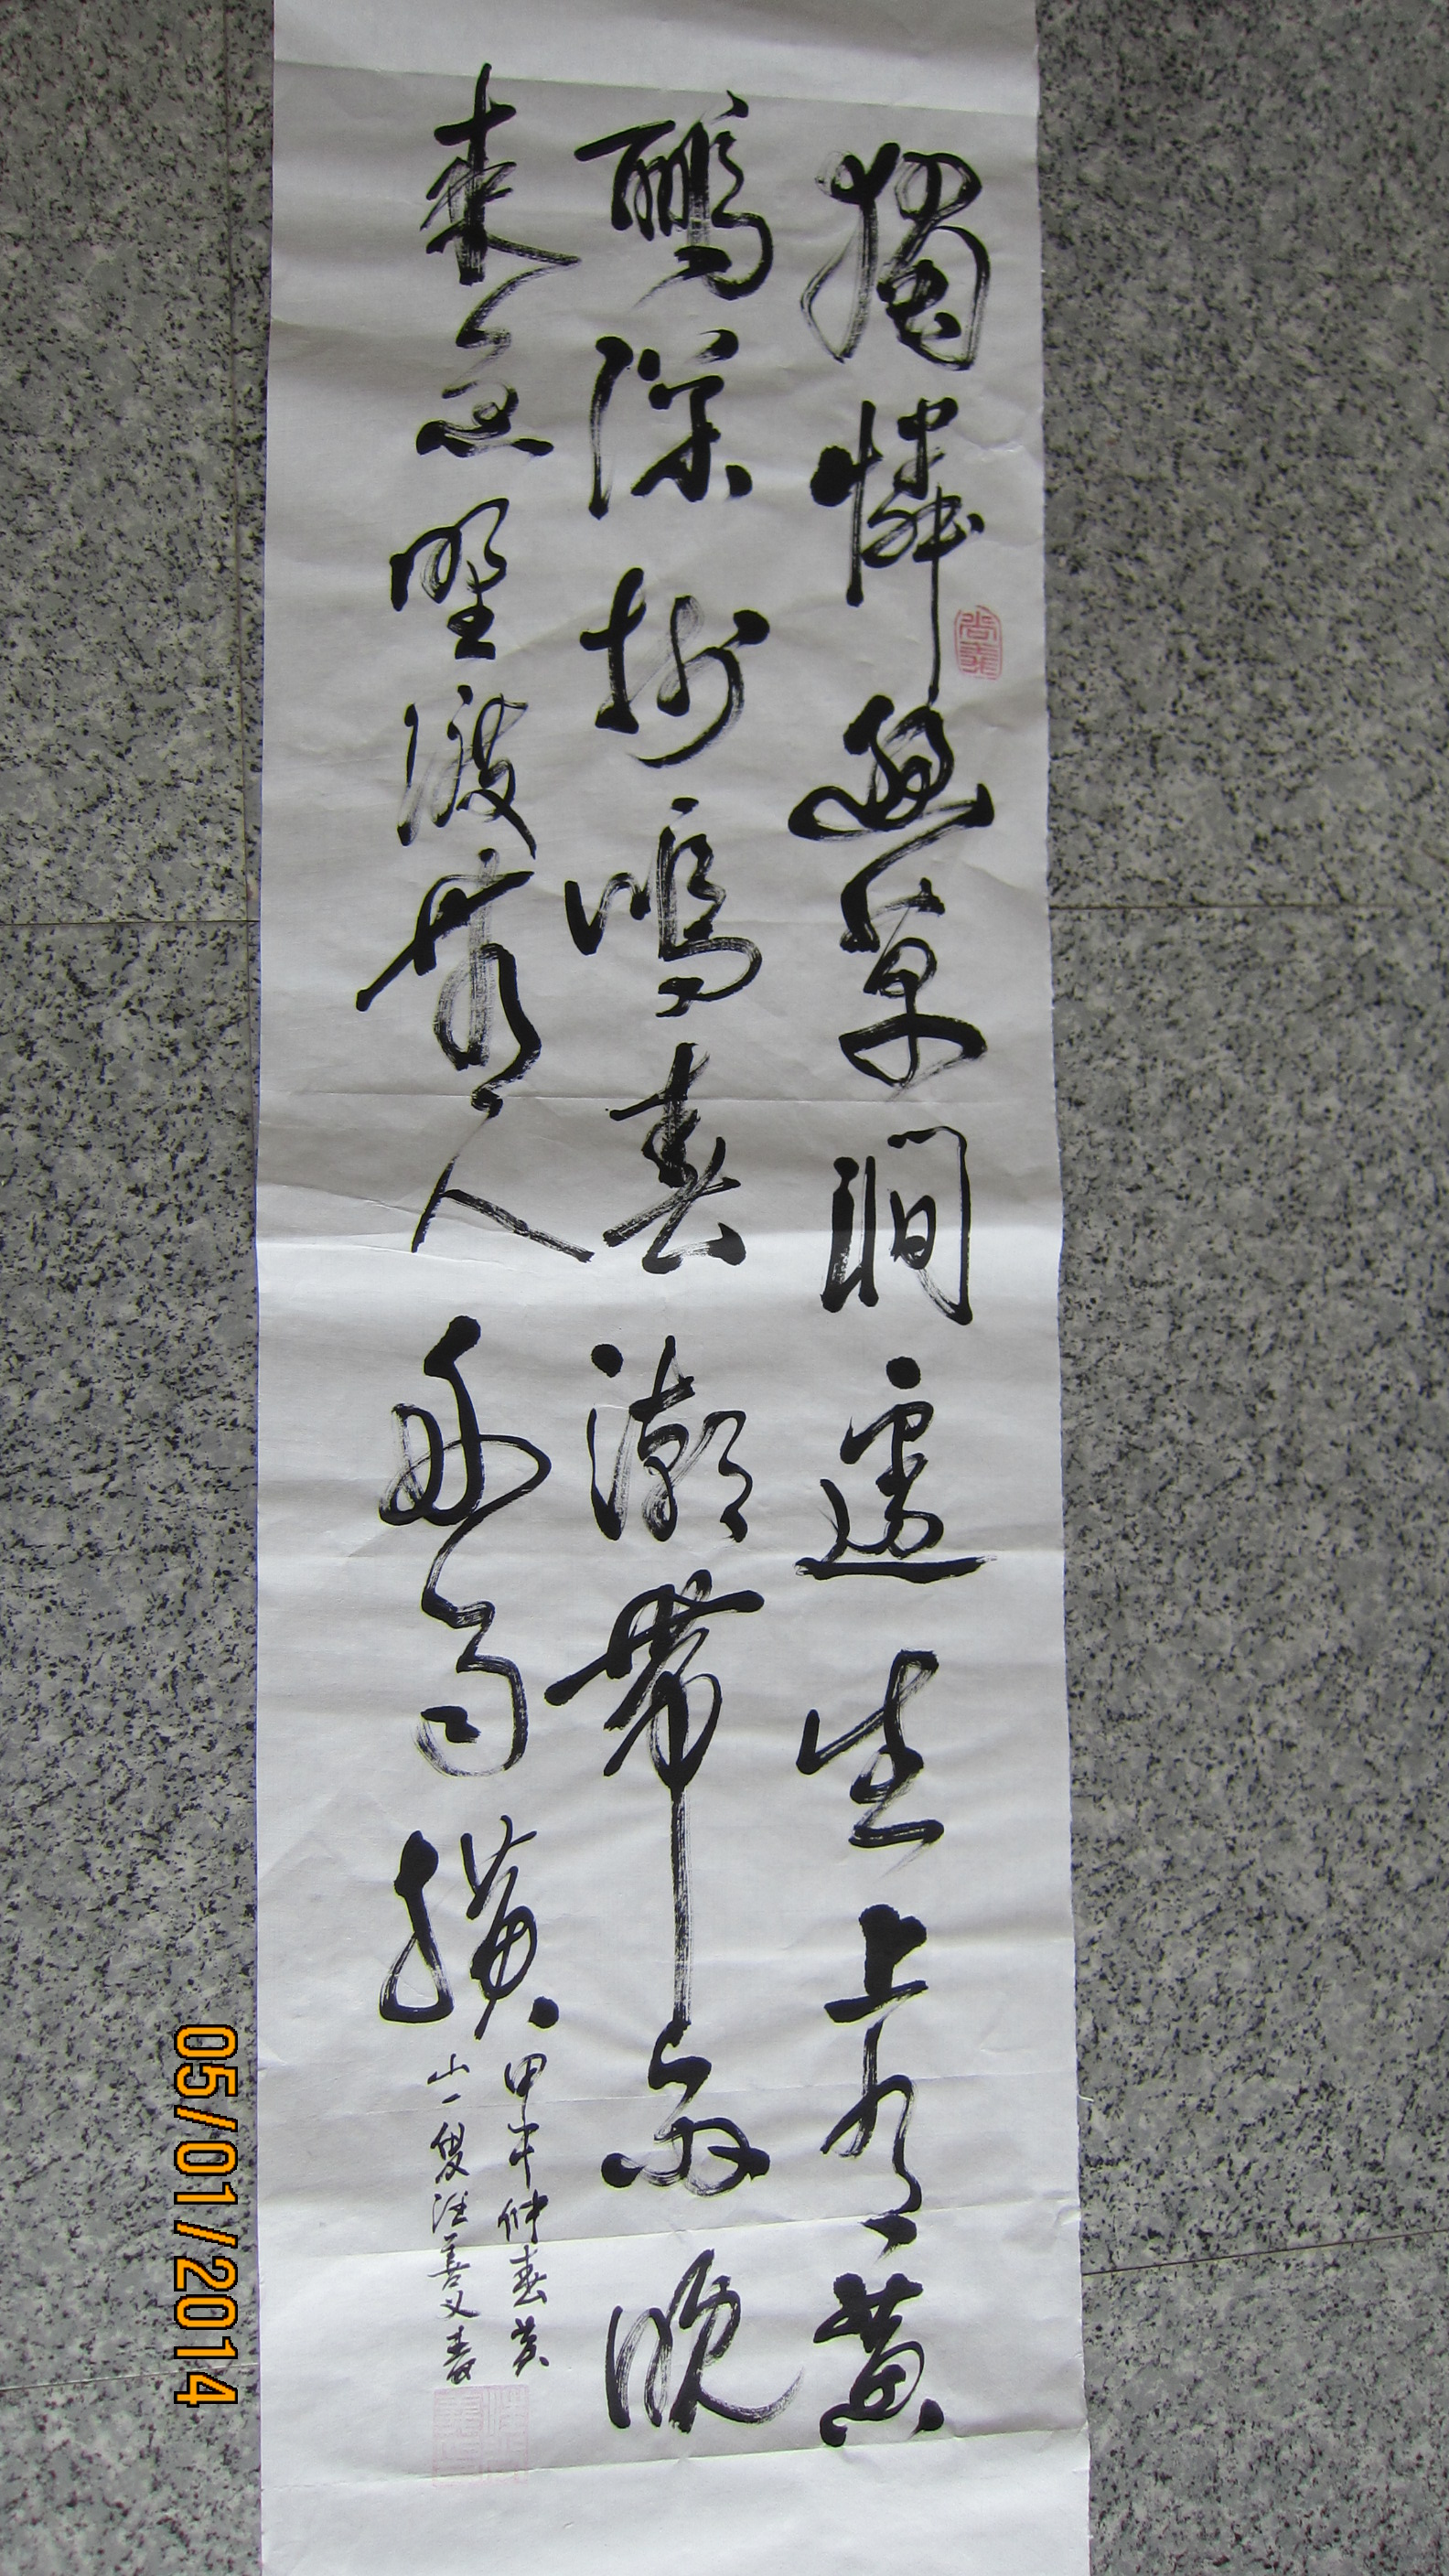 獨憐幽草澗邊生上有黃
鸝深樹鳴春潮帶雨晚
來急野渡無人舟自橫
甲午仲春黃
山一叟汪善文書
05/01/2014